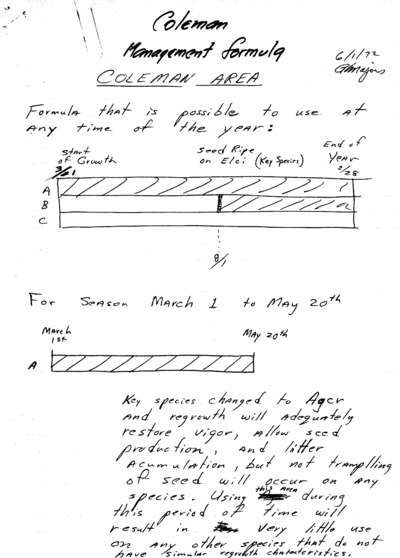 Coleman
Management formula
6/1/72
COLEMAN AREA
Formula that is possible to use at
any time of the year:
Start
of Growth
3/1
Seed Ripe
on Elci (Key Species)
End of
Year
2/28
A
B
C
8/1
For Season March 1 to May 20th
March
1st
May 20th
A
Key species changed to Agcr
and regrowth will adequately
restore vigor, allow seed
production, and litter
acumulation, but not trampling
of seed will occur on any
species. Using this area during
this period of time will
result in very little use
on any other species that do not
have simular regrowth chateristics.